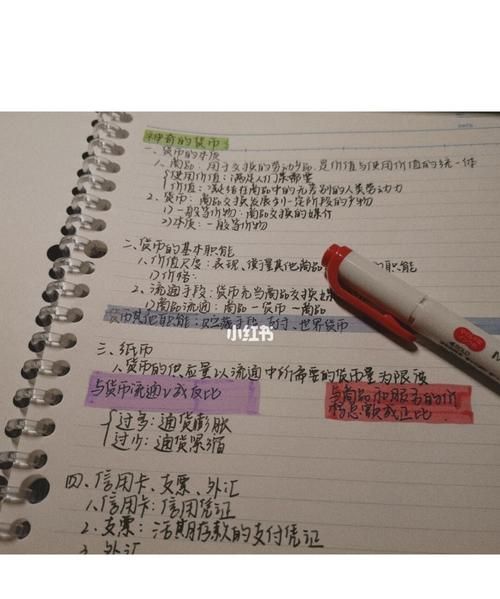 神奇的货币
一、货币的本质
1、商品：用于交换的劳动产品，是价值与使用价值的统一体
使用价值：满足人们某部要
价值：凝结在商品中的无差别的人类劳动力
2、货币：商品交换发展到一定阶段的产物
1)一般等价物：商品交换的媒介
2)本质：一般等价物
二、货币的基本职能
1、价值尺度：表现、衡量其他商品 职能
1)价格：
2、流通手段：货币充当商品交换媒
1)商品流通：商品－货币－商品
货币其他职能：贮藏手段、支付、世界货币
小红书
三、纸币
1、货币的供应量以流通中所需要的货币量为限度
与货币流通 成反比
与商品和服务的价
格总额成正比
过多：通货膨胀
过少：通货紧缩
四、信用卡、支票、外汇
1、信用卡：信用凭证
2、支票：活期存款的支付凭证
3、外汇